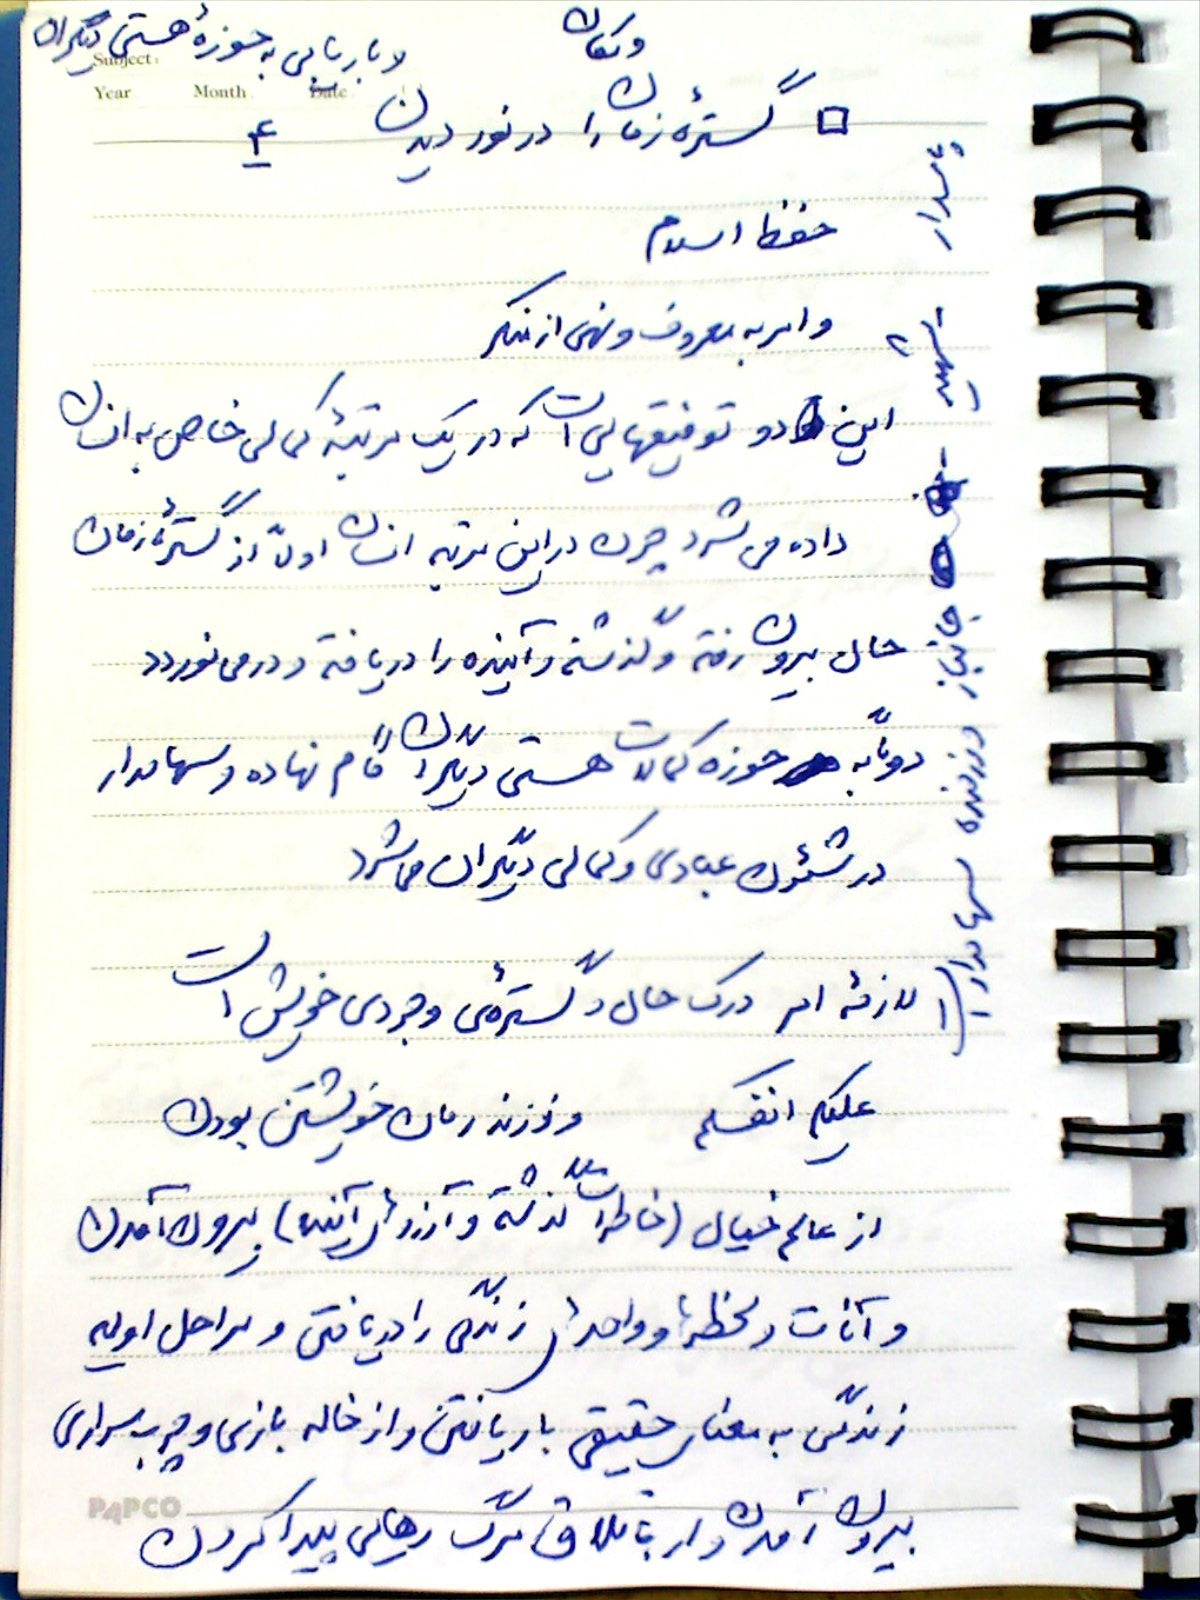 و مکان
و باریابی به حوزهٔ هستی دیگران
Subject:
Year Month. Date.
□ گسترهٔ زمان را در نوردیدن ۴
حفظ اسلام
و امر به معروف و نهی از منکر
این دو توفیقهایی است که در یک مرتبهٔ کمالی خاص به انسان
داده می‌شود چون در این مرتبه انسان اولاً از گسترهٔ زمان
حال بیرون رفته و گذشته و آینده را دریافته و در می‌نوردد
دوماً به حوزه کمالات هستی دیگران گام نهاده و سهامدار
در شئون عبادی و کمالی دیگران می‌شود
لازمهٔ امر درک حال و گستره‌ی وجودی خویش است
علیکم انفسکم و فرزند زمان خویشتن بودن
از عالم خیال (خاطرات گذشته و آرزوهای آینده) بیرون آمدن
و آنات و لحظه‌ها و واحدهای زندگی را دریافتن و مراحل اولیه
زندگی به معنای حقیقی بار یافتن و از خاله بازی و چوب سواری
بیرون آمدن و از باتلاق مرگ رهایی پیدا کردن
پاسدار
شهید
جانباز
رزمنده
سهامدار
PAPCO